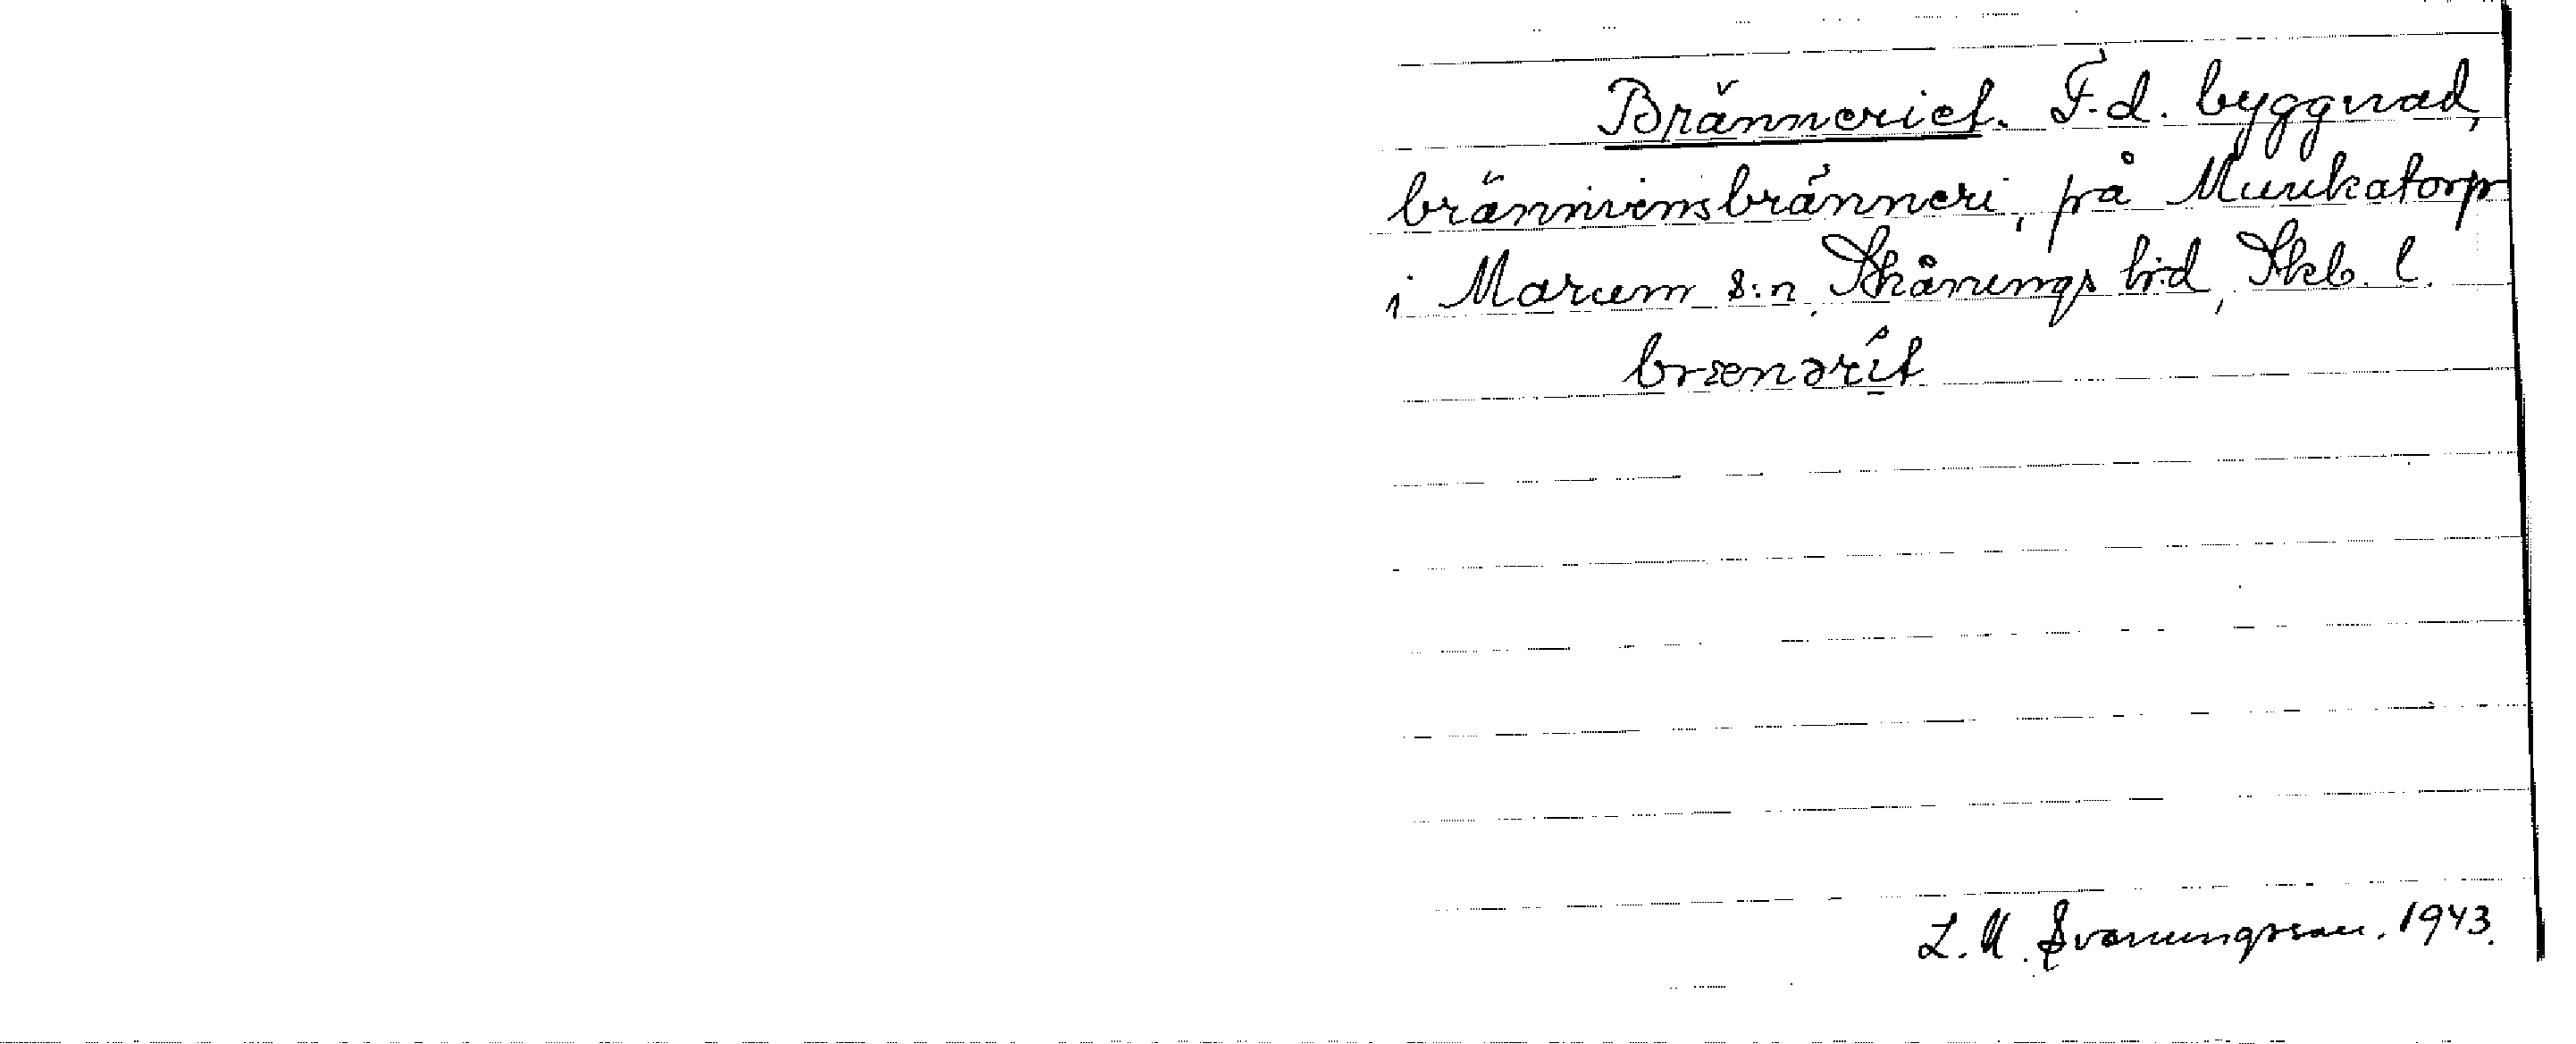 Bränneriet. F.d. byggnad,
brännvinsbränneri, på Munkatorp
i Marum s:n, Skånings hrd, Skb. l.
brænərít
L. M. Svanungsson. 1943.